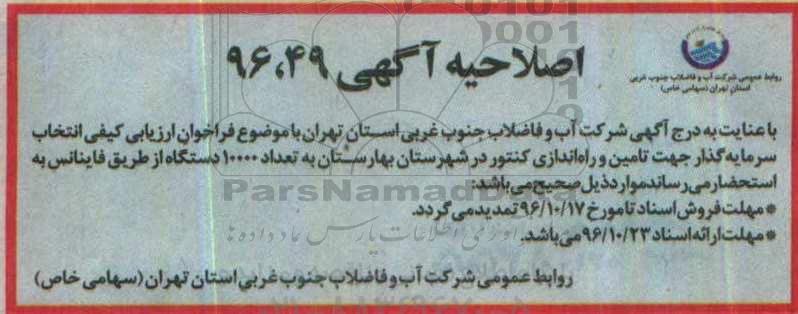 روابط عمومی شرکت آب و فاضلاب جنوب غربی
استان تهران (سهامی خاص)
اصلاحیه آگهی ۹۶،۴۹
با عنایت به درج آگهی شرکت آب و فاضلاب جنوب غربی استان تهران با موضوع فراخوان ارزیابی کیفی انتخاب
سرمایه گذار جهت تامین و راه‌اندازی کنتور در شهرستان بهارستان به تعداد ۱۰۰۰۰ دستگاه از طریق فاینانس به
استحضار می رساند موارد ذیل صحیح می باشد:
* مهلت فروش اسناد تا مورخ ۹۶/۱۰/۱۷ تمدید می گردد.
* مهلت ارائه اسناد ۹۶/۱۰/۲۳ می باشد.
روابط عمومی شرکت آب و فاضلاب جنوب غربی استان تهران (سهامی خاص)
ParsNamadData